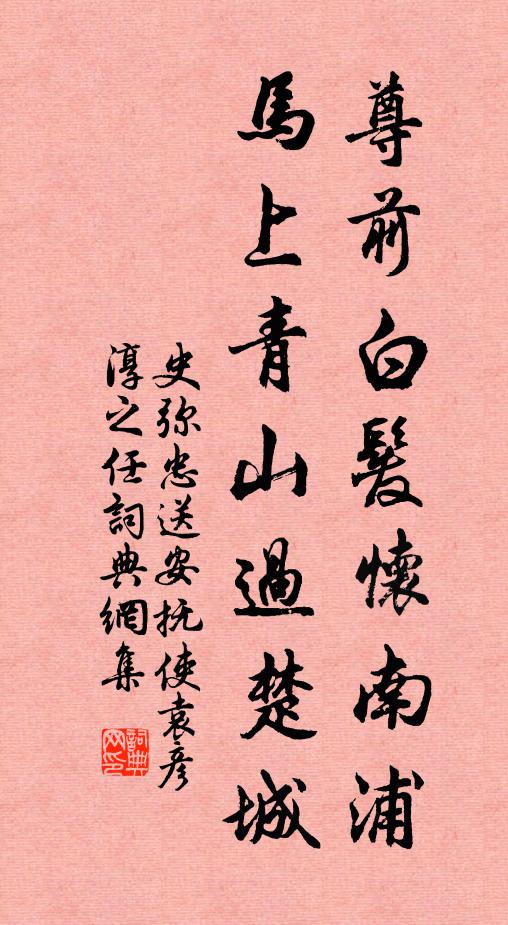 尊前白髮懷南浦
馬上青山過楚城
史弥忠送安抚使袁彦
淳之任詞典網集
詞典網印